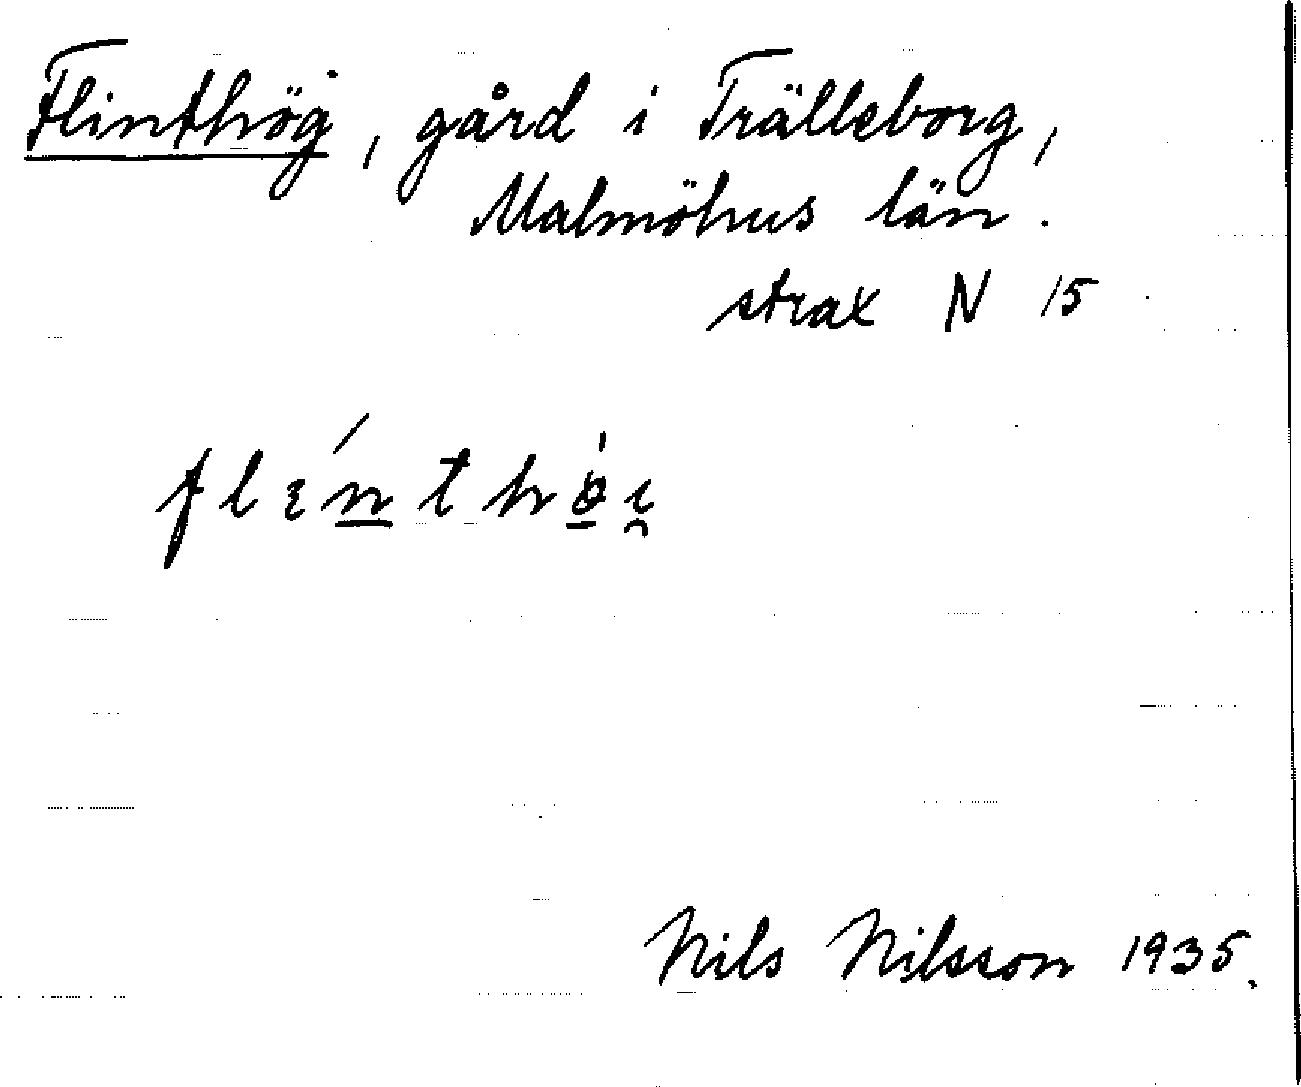 Flinthög, gård i Trälleborg,
Malmöhus län.
strax N 15
flɛ́n̲thø̲̍i̯
Nils Nilsson 1935.